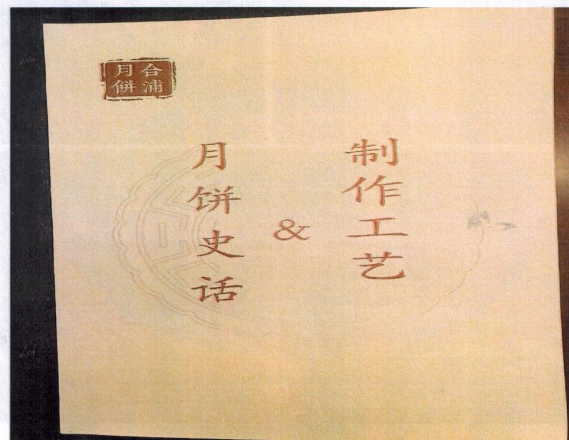 合浦
月餅
月饼史话
&
制作工艺